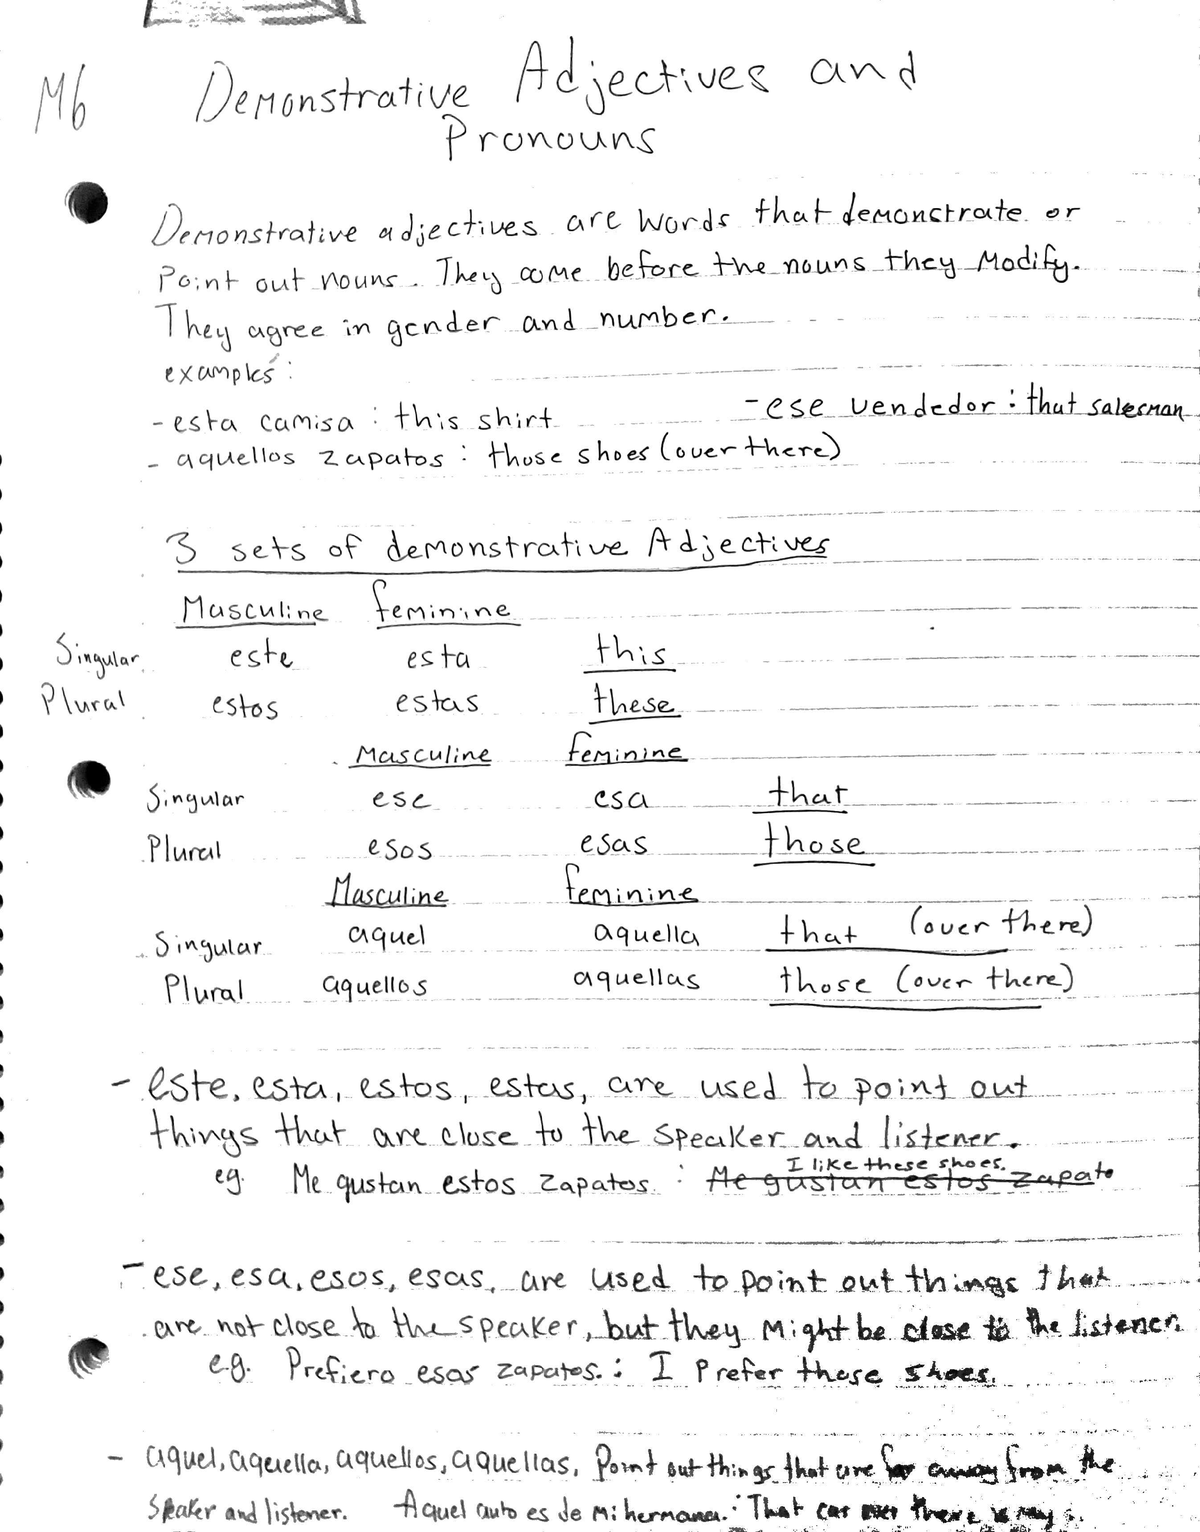 M6
Demonstrative Adjectives and
Pronouns
Demonstrative adjectives are words that demonstrate or
Point out nouns. They come before the nouns they Modify.
They agree in gender and number.
examples:
- esta camisa : this shirt -ese vendedor : that salesman
- aquellos zapatos : those shoes (over there)
3 sets of demonstrative Adjectives
Masculine feminine
Singular este esta this
Plural estos estas these
Masculine feminine
Singular ese esa that
Plural esos esas those
Masculine feminine
Singular aquel aquella that (over there)
Plural aquellos aquellas those (over there)
- este, esta, estos, estas, are used to point out
things that are close to the speaker and listener.
I like these shoes.
eg. Me gustan estos zapatos. : Me gustan estos zapato
- ese, esa, esos, esas, are used to point out things that
are not close to the speaker, but they Might be close to the listener.
e.g. Prefiero esos zapatos. : I Prefer those shoes.
- aquel, aquella, aquellos, aquellas, Point out things that are far away from the
Speaker and listener. Aquel auto es de Mi hermana. : That car over there is my